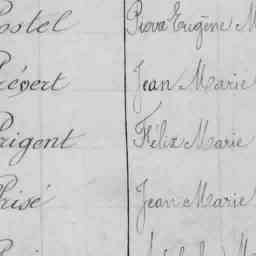 Postel Pierre Eugène M
Prévert Jean Marie
Prigent Félix Marie
Prisé Jean Marie